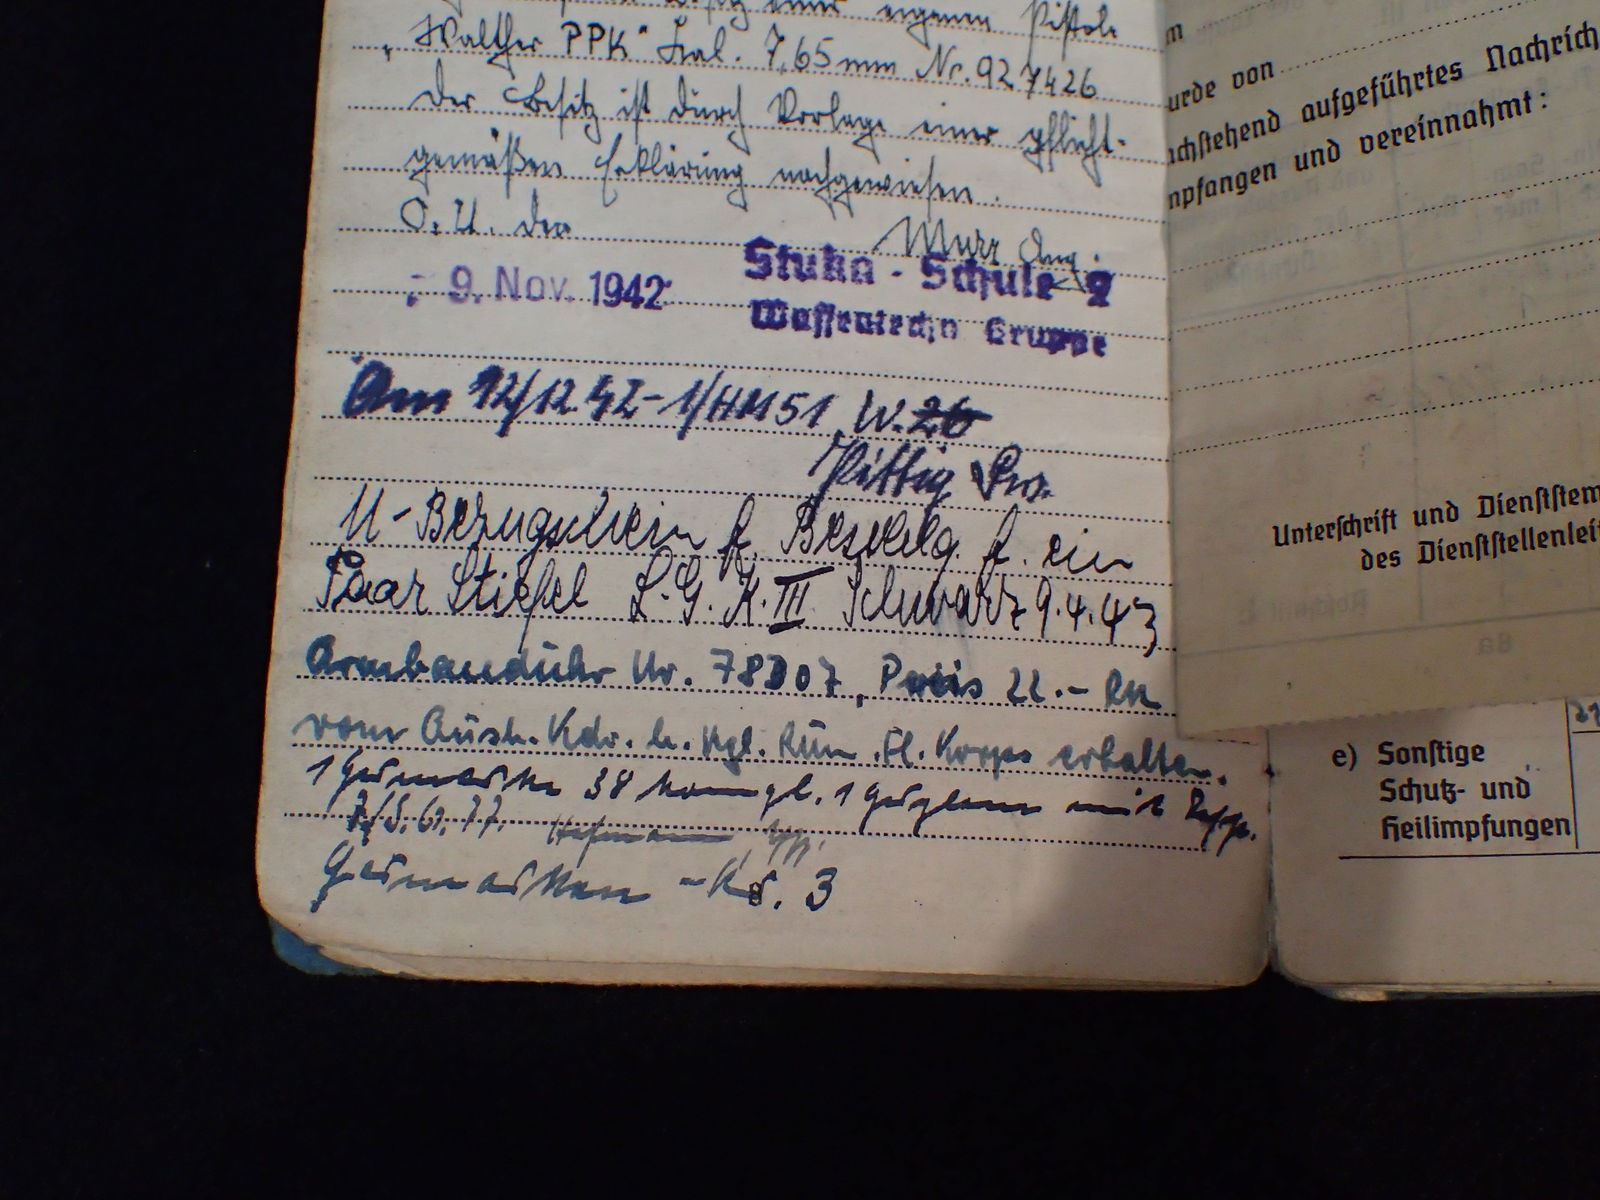 einer eigenen Pistole
"Walther PPK" Kal. 7,65 mm Nr. 927426
Der Besitz ist durch Vorlage einer pflicht-
gemäßen Erklärung nachgewiesen.
O.U. den
- 9. Nov. 1942
Stuka - Schule 2
Waffentechn Gruppe
Am 12/12.42 - 1/HM 51 W. 26
Pittig
U-Bezugschein f. Besohlg. f. ein
Paar Stiefel L.G.K. III Schwarz 9.4.43
Armbanduhr Nr. 78307, Preis 22.- RM
vom Ausb. Kdo. b. Kgl. Rum. Fl. Korps erhalten.
1 Gasmaske 38 kompl. 1 Gasplane mit
Gasmasken - Gr. 3
m
urde von
chstehend aufgeführtes Nachrich
mpfangen und vereinnahmt:
Unterschrift und Dienststem
des Dienststellenleit
8a
e) Sonstige
Schutz- und
Heilimpfungen